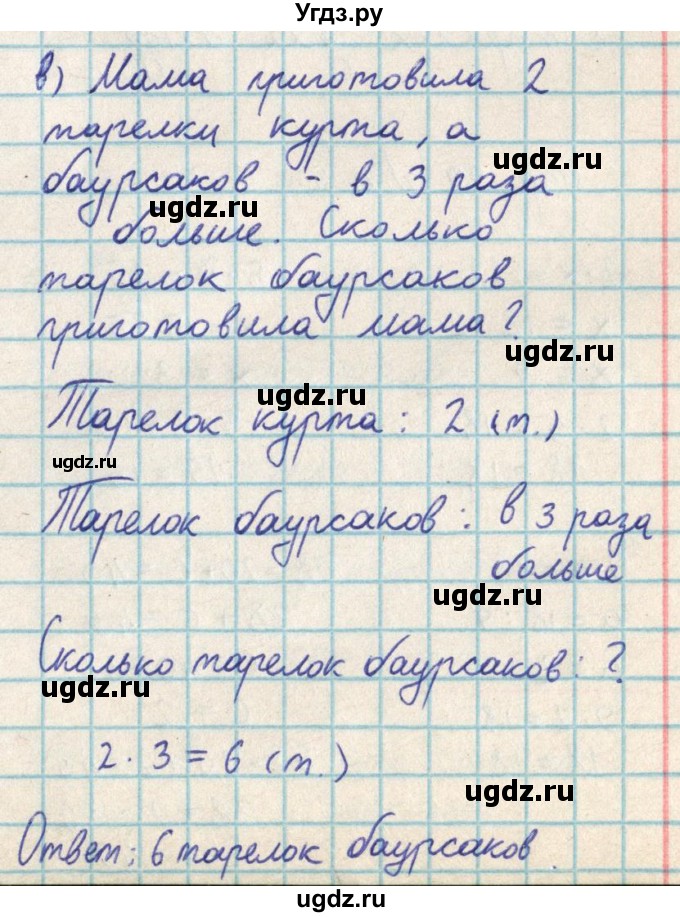 Угдз.ру
в) Мама приготовила 2
тарелки курта, а
ugdz.ru
баурсаков - в 3 раза
ugdz.ru
больше. Сколько
тарелок баурсаков
приготовила мама?
ugdz.ru
ugdz.ru
Тарелок курта: 2 (т.)
ugdz.ru
Тарелок баурсаков: в 3 раза
больше
ugdz.ru
Сколько тарелок баурсаков: ?
ugdz.ru
2 · 3 = 6 (т.)
ugdz.ru
Ответ: 6 тарелок баурсаков.
ugdz.ru